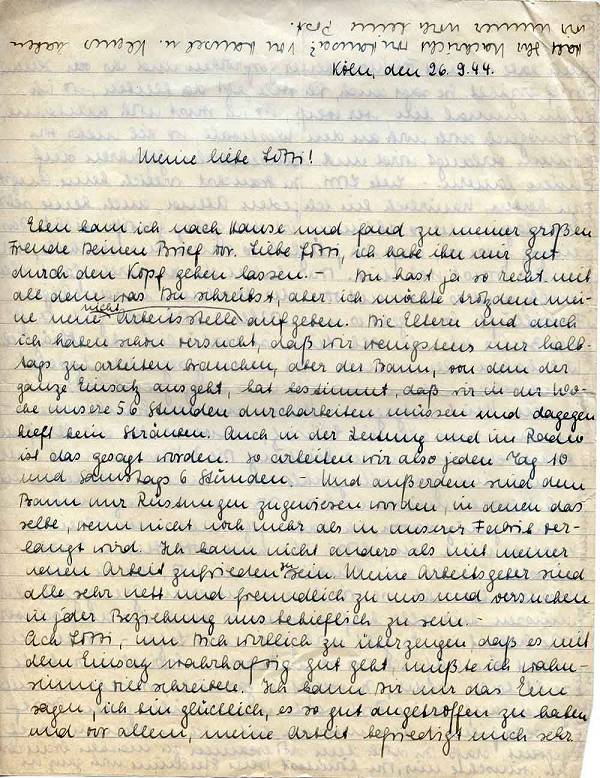 Habt Ihr Nachricht von Hansa? Von Hansel u. Klaus haben
wir immer noch keine Post.
Köln, den 26.9.44.
Meine liebe Lotti!
Eben kam ich nach Hause und fand zu meiner großen
Freude Deinen Brief vor. Liebe Lotti, ich habe ihn mir gut
durch den Kopf gehen lassen. – Du hast ja so recht mit
all dem was Du schreibst, aber ich möchte trotzdem mei-
ne neue nicht Arbeitsstelle aufgeben. Die Eltern und auch
ich haben schon versucht, daß wir wenigstens nur halb-
tags zu arbeiten brauchen, aber der Bann, von dem der
ganze Einsatz ausgeht, hat bestimmt, daß wir in der Wo-
che unsere 56 Stunden durcharbeiten müssen und dagegen
hilft kein Sträuben. Auch in der Zeitung und im Radio
ist das gesagt worden. So arbeiten wir also jeden Tag 10
und Samstags 6 Stunden. – Und außerdem sind dem
Bann nur Rüstungen zugewiesen worden, in denen das
selbe, wenn nicht noch mehr als in unserer Fabrik ver-
langt wird. Ich kann nicht anders als mit meiner
neuen Arbeit zufrieden zu sein. Meine Arbeitsgeber sind
alle sehr nett und freundlich zu uns und versuchen
in jeder Beziehung uns behilflich zu sein. –
Ach Lotti, um Dich wirklich zu überzeugen daß es mit
dem Einsatz wahrhaftig gut geht, müßte ich wahn-
sinnig viel schreiben. Ich kann Dir nur das Eine
sagen, ich bin glücklich, es so gut angetroffen zu haben
und vor allem, meine Arbeit befriedigt mich sehr.